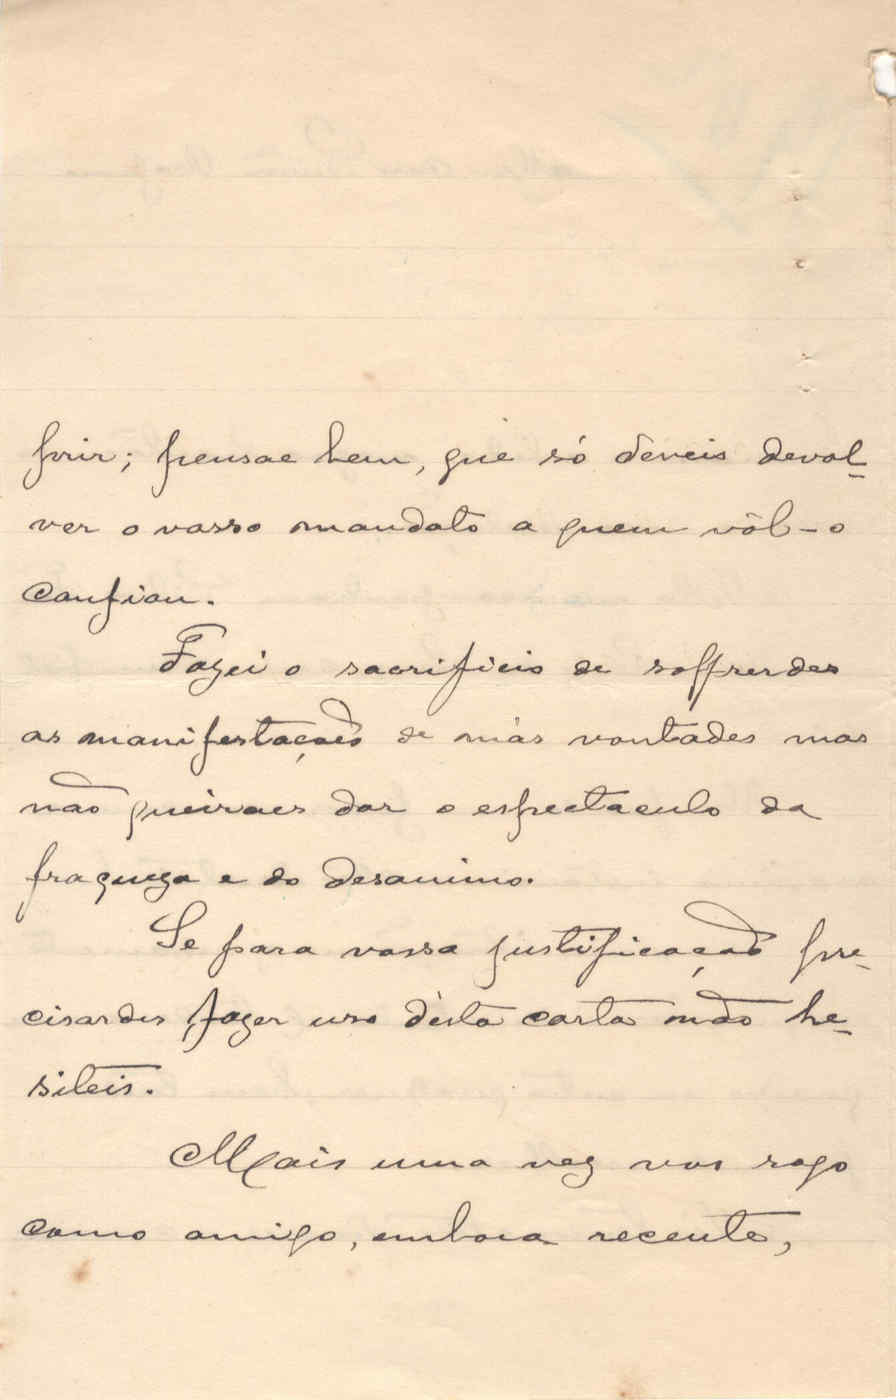 frir; pensae bem, que só deveis devol-
ver o vosso mandato a quem vôl-o
confiou.
Fazei o sacrificio de soffrerdes
as manifestações de más vontades mas
não queiraes dar o espectaculo da
fraqueza e do desanimo.
Se para vossa justificação pre-
cisardes fazer uso d'esta carta não he-
siteis.
Mais uma vez vos rogo
como amigo, embora recente,